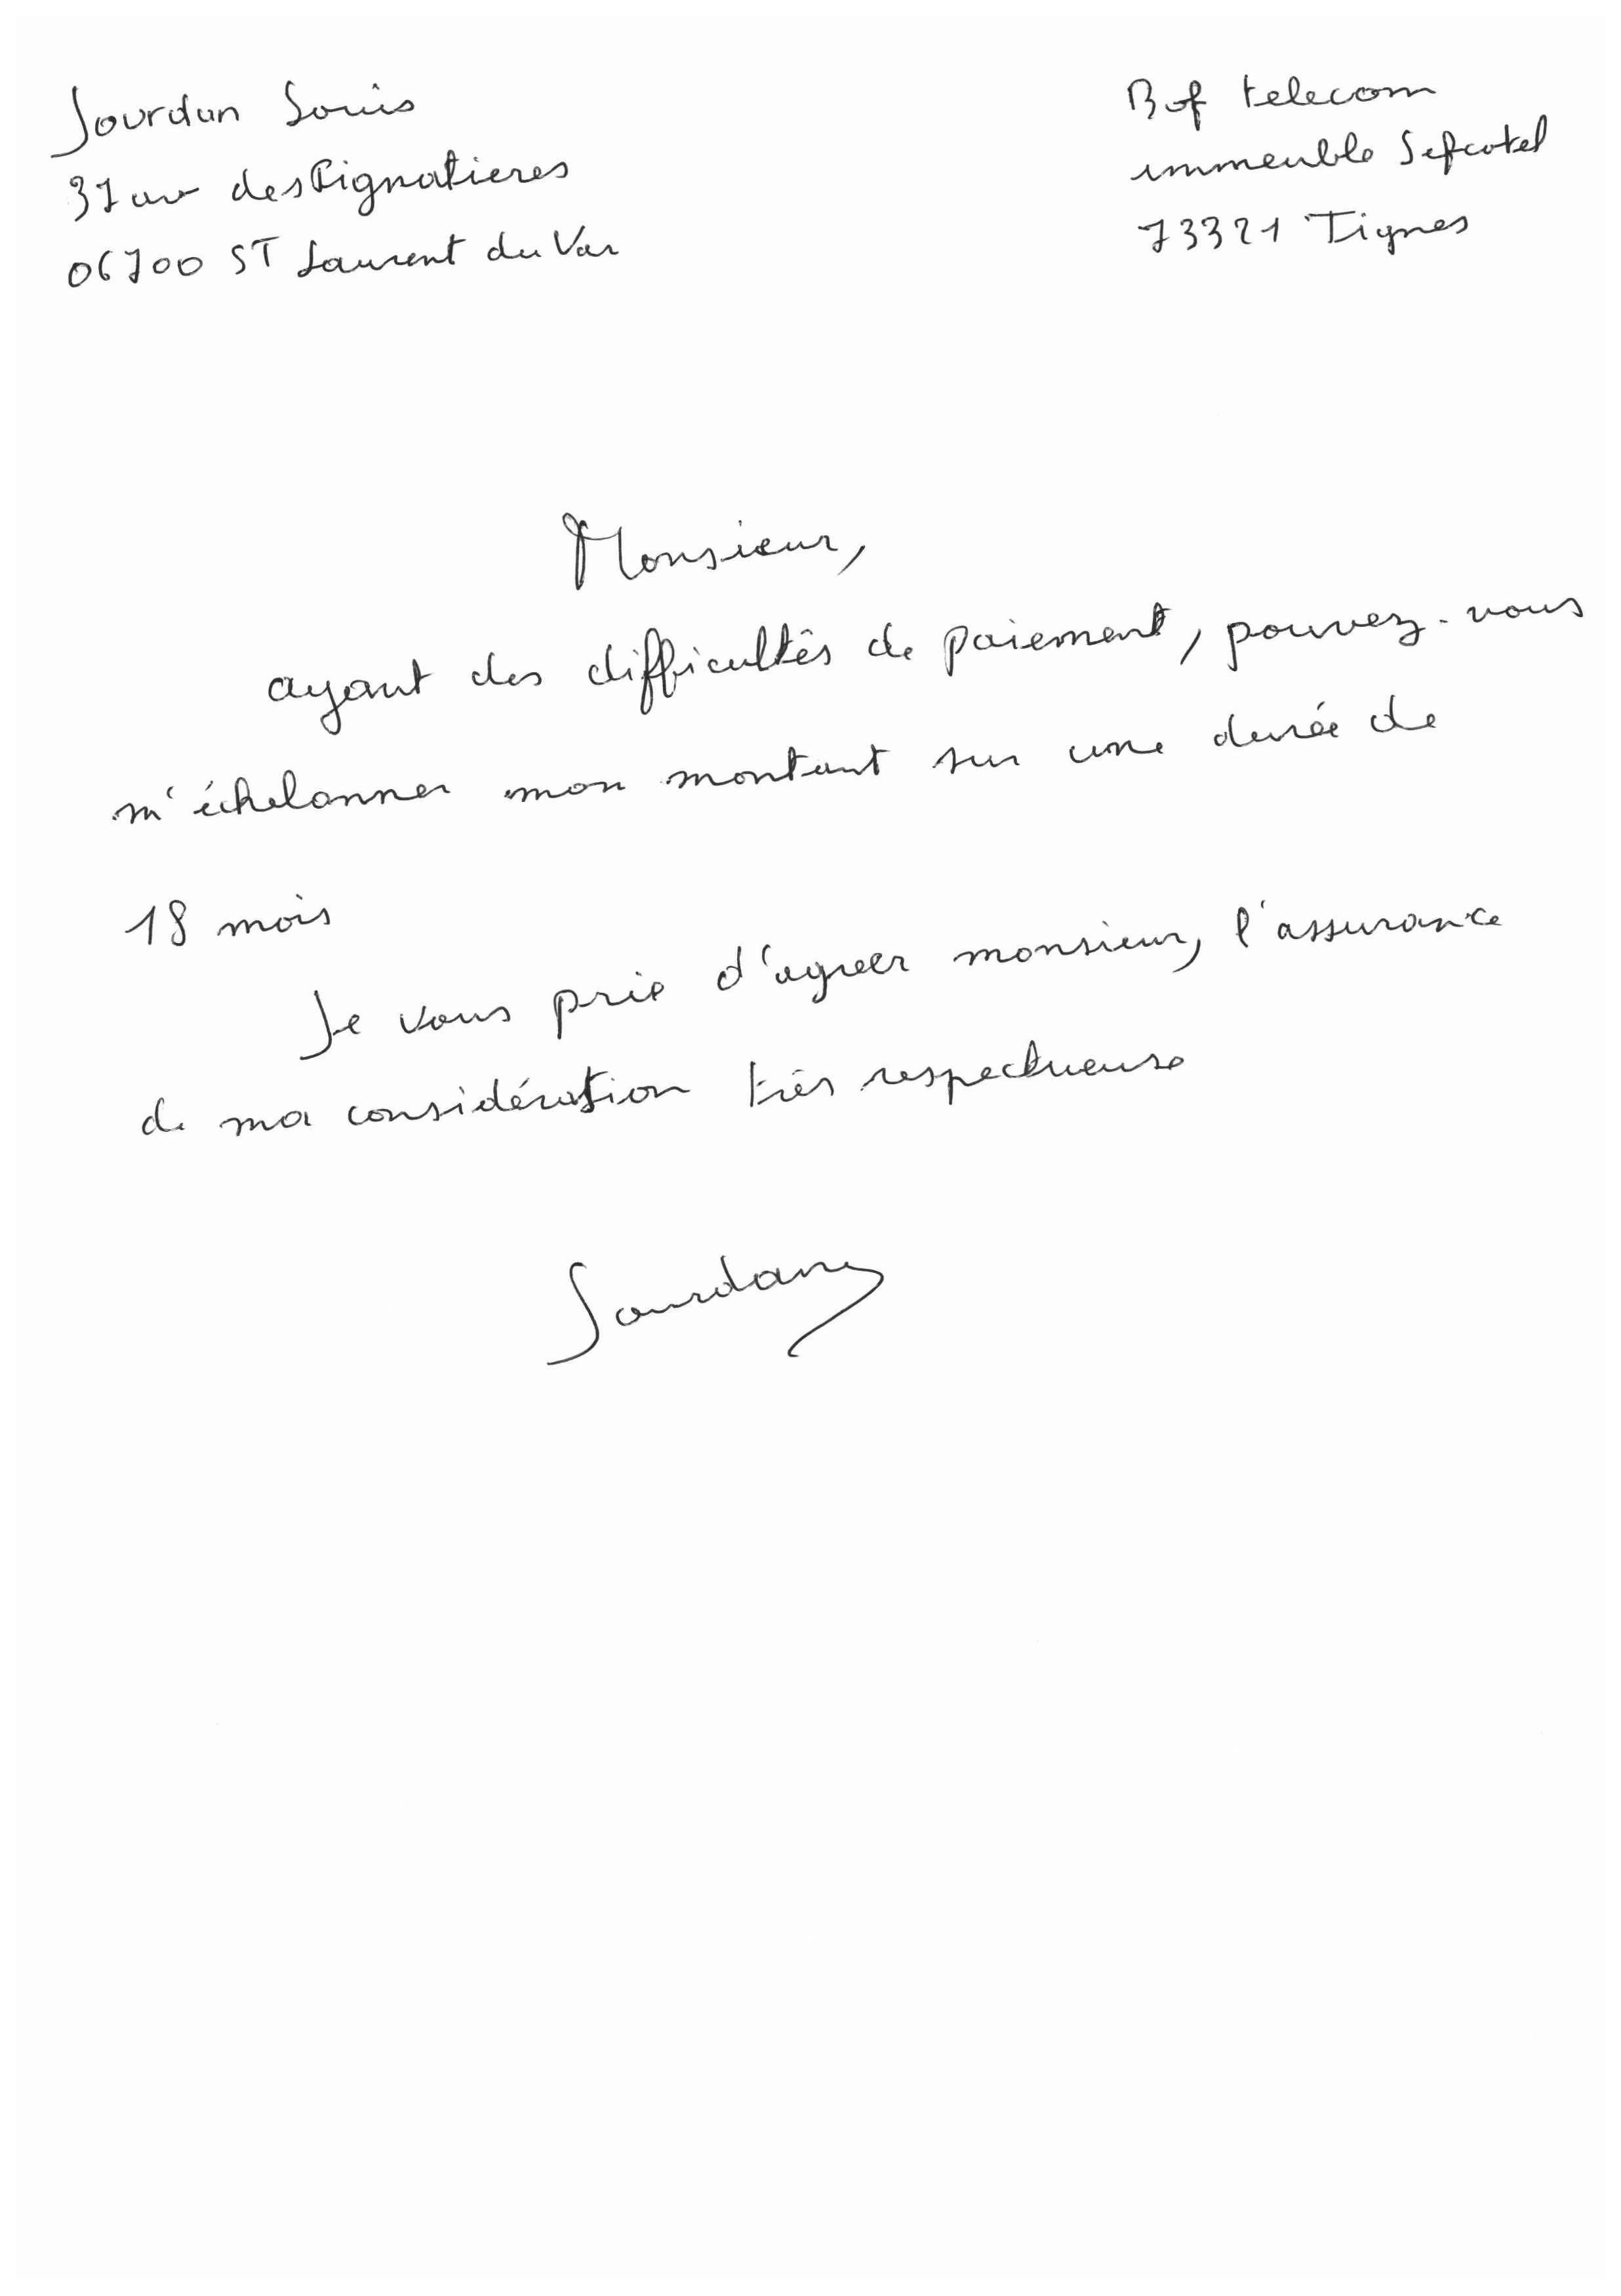 Jourdan Louis
37 av des Pignatieres
06700 ST Laurent du Var
Bof telecom
immeuble Sefcotel
73321 Tignes
Monsieur,
ayant des difficultés de paiement, pouvez-vous
m'échelonner mon montant sur une durée de
18 mois
Je vous prie d'agreer monsieur, l'assurance
de ma considération très respectueuse
Jourdan